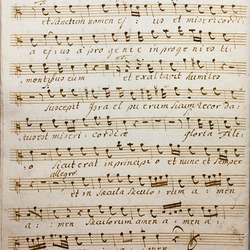 et sanctum nomen ej us et misericordi
a ejus a progenie in progenies ti
mentibus eum et exaltavit humiles
suscepit Israel puerum suum recorda
misericordiæ gloria Fili
o sicut erat in principio et nunc et semper
allegro
et in sæcula sæculo rum a men
a men sæculorum amen a men a